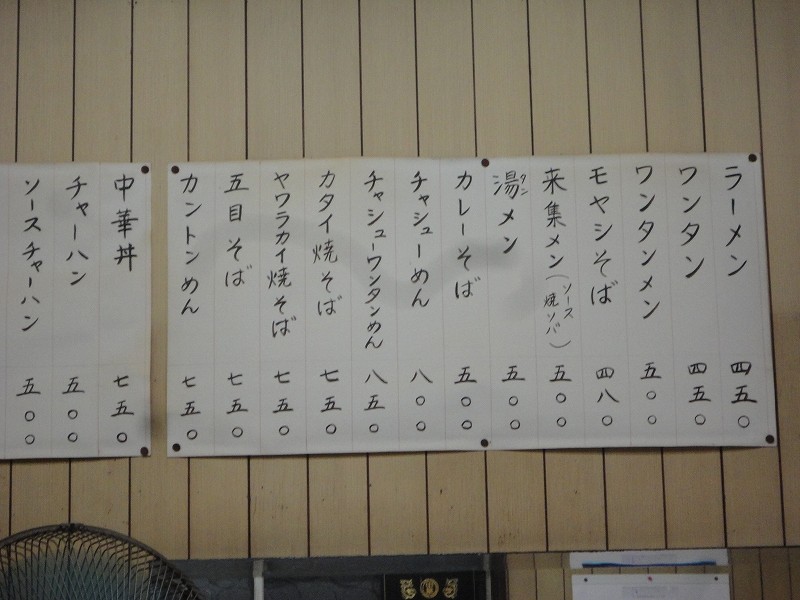 ラーメン 四五〇
ワンタン 四五〇
ワンタンメン 五〇〇
モヤシそば 四八〇
来集メン(ソース焼ソバ) 五〇〇
湯メン タン 五〇〇
カレーそば 五〇〇
チャシューめん 八〇〇
チャシューワンタンめん 八五〇
カタイ焼そば 七五〇
ヤワラカイ焼そば 七五〇
五目そば 七五〇
カントンめん 七五〇
中華丼 七五〇
チャーハン 五〇〇
ソースチャーハン 五〇〇